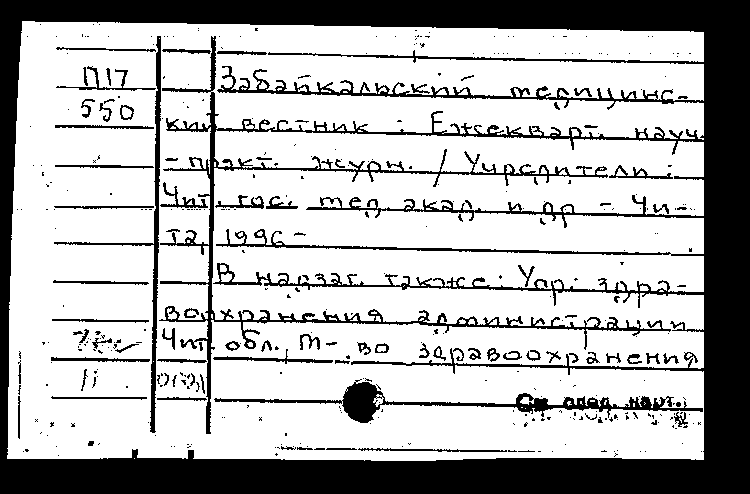 П17
550
Забайкальский медицинс-
кий вестник : Ежекварт. науч.
-практ. журн. / Учредители :
Чит. гос. мед. акад. и др - Чи-
та, 1996 -
В надзаг. также: Упр. здра-
воохранения администрации
Чит. обл., т-во здравоохранения
11
См след. карт.